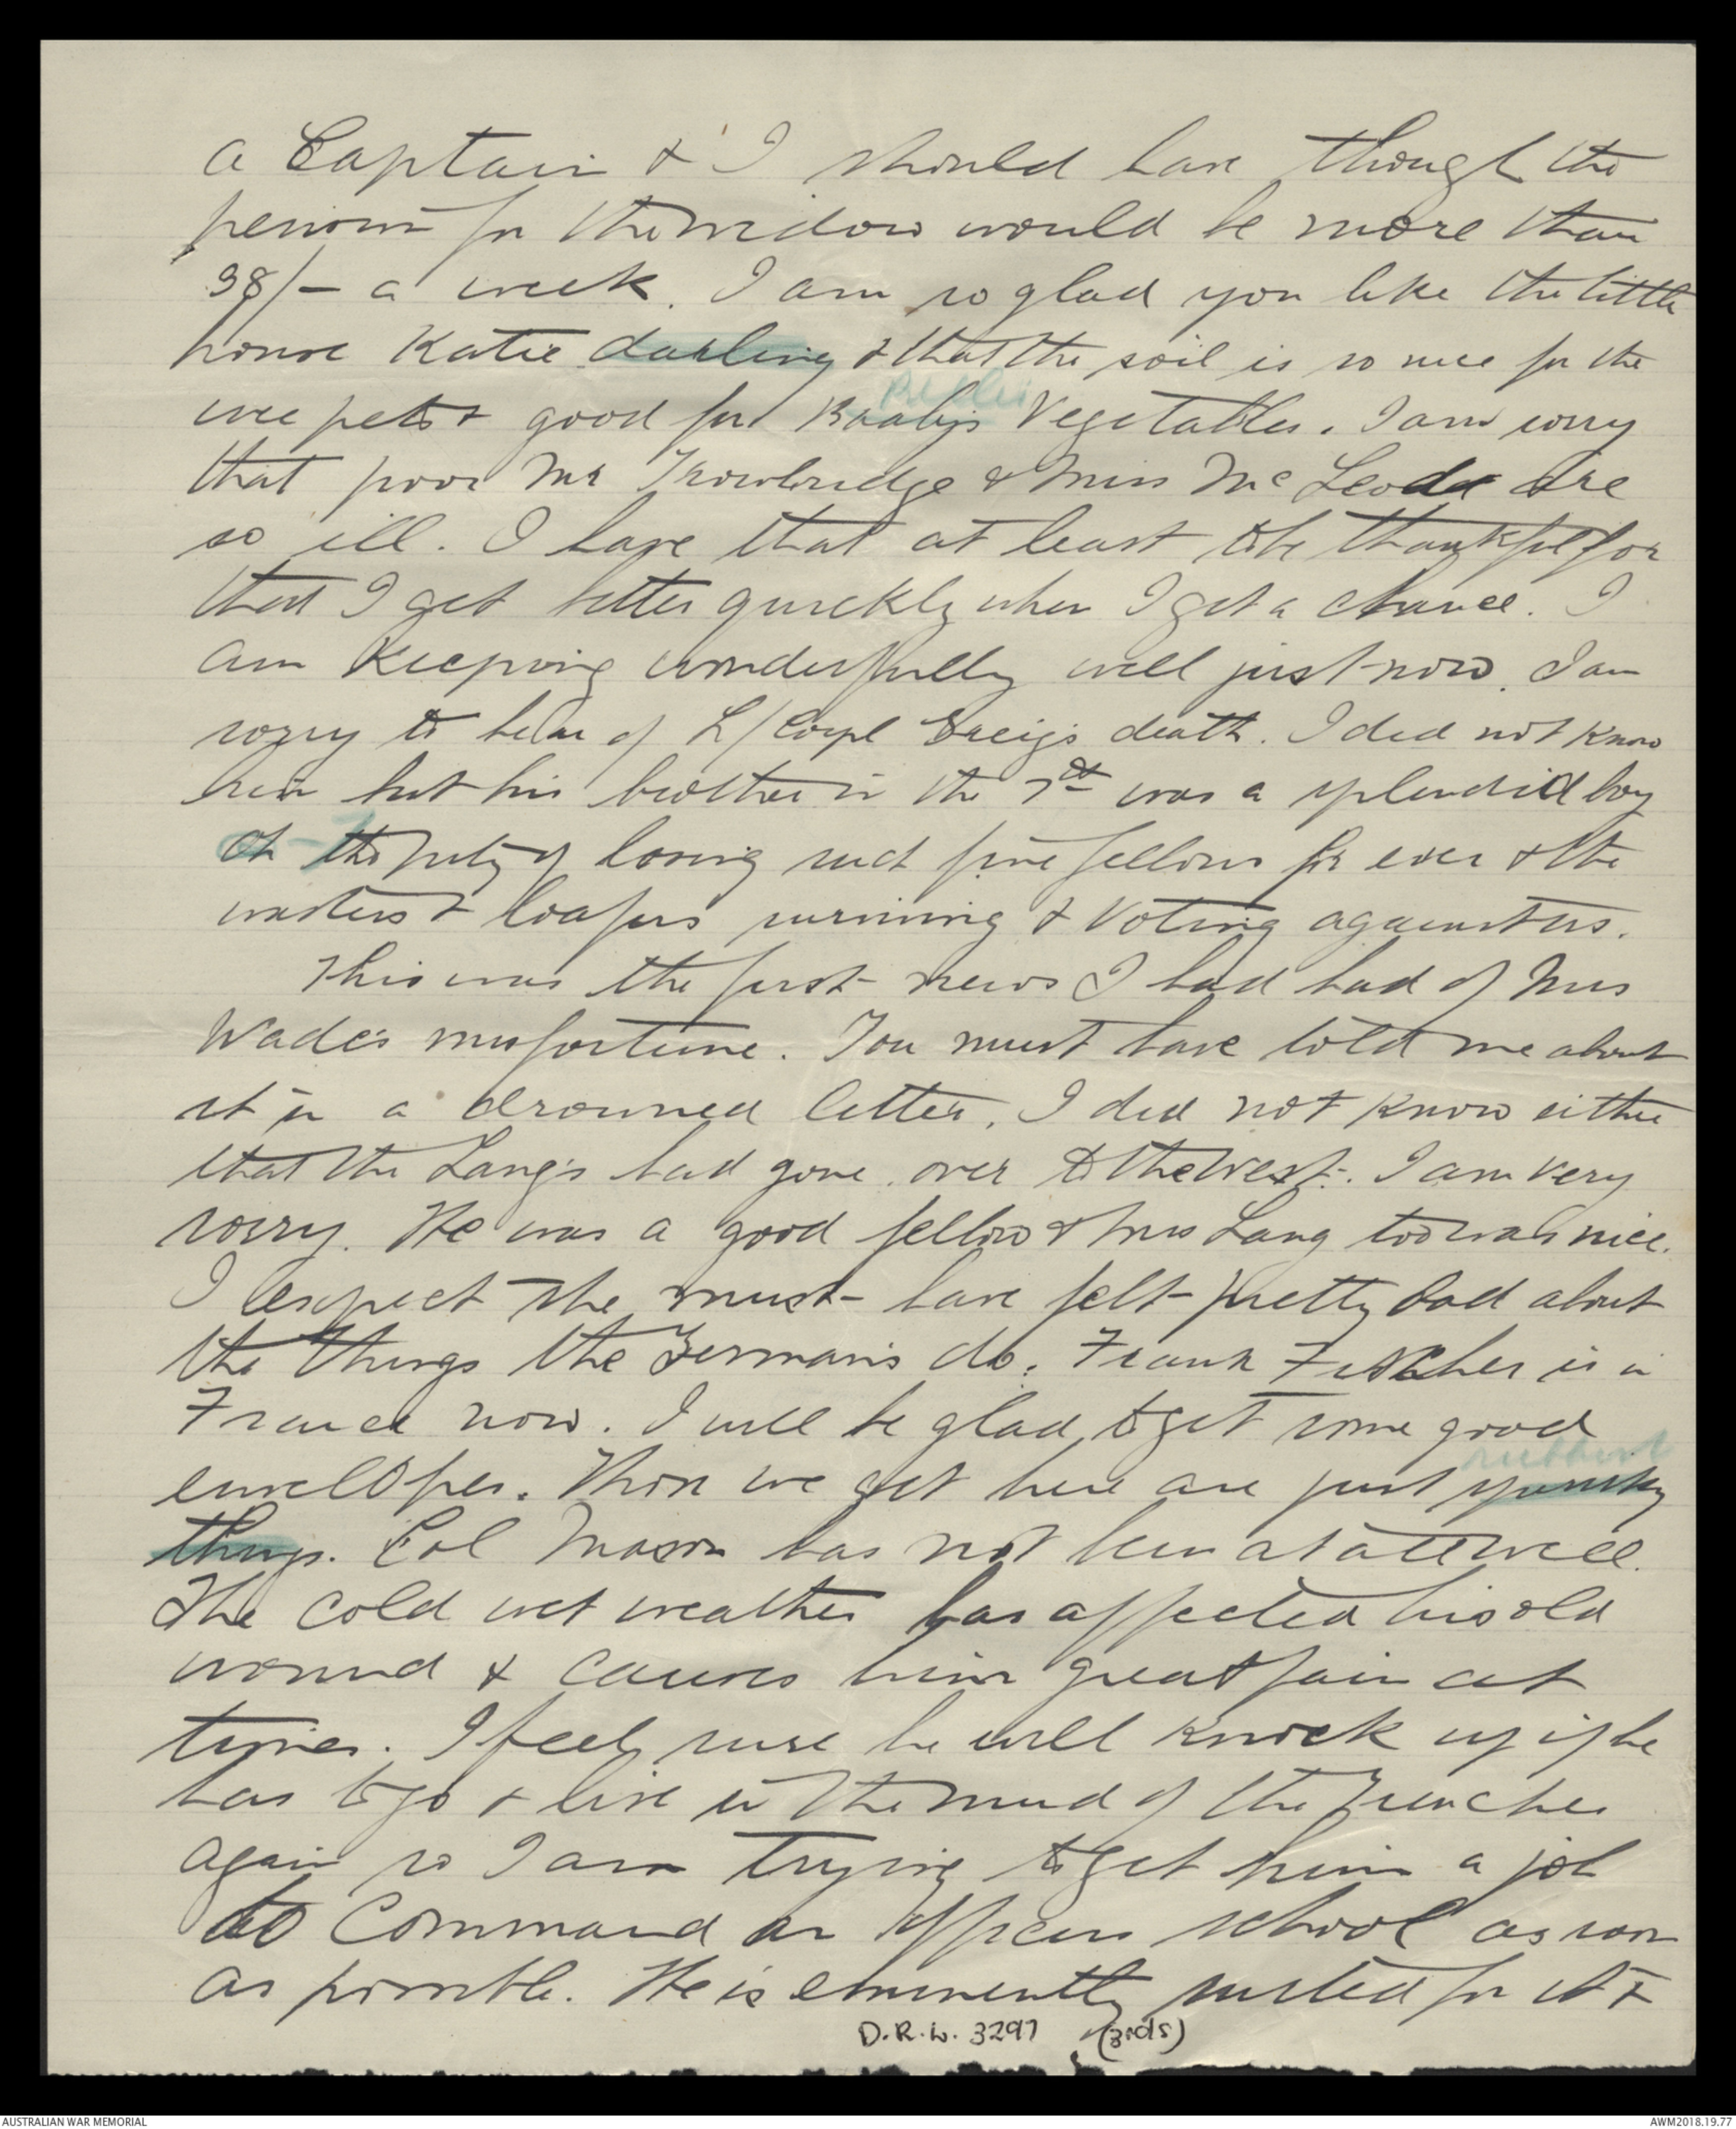 a Captain & I should have though the
pension for the widow would be more than
38/- a week. I am so glad you like the little
house Katie darling & that the soil is so nice for the
wee pets & good for Baaby's Vegetables. I am sorry
that poor Mr Trowbridge & Miss McLeod are
so ill. I have that at least to be thankful for
that I get better quickly when I get a chance. I
am keeping wonderfully well just now. I am
sorry to hear of L/Corpl Greig's death. I did not know
him but his brother in the 7th was a splendid boy
Oh the pity of losing such fine fellows for ever & the
wasters & loafers surviving & Voting against us.
This was the first news I had had of Mrs
Wade's misfortune. You must have told me about
it in a drowned letter. I did not know either
that the Lang's had gone over to the West. I am very
sorry. He was a good fellow & Mrs Lang too was nice.
I expect she must have felt pretty bad about
the things the Germans do. Frank Fischer is in
France now. I will be glad to get some good
envelopes. Those we get here are just
things. Col Mason has not been at all well.
The cold wet weather has affected his old
wound & causes him great pain at
times. I feel sure he will knock up if he
has to go & live in the mud of the trenches
again so I am trying to get him a job
to Command an Officers school as soon
as possible. He is eminently suited for it &
D.R.L. 3297 (3rds)
AUSTRALIAN WAR MEMORIAL AWM2018.19.77